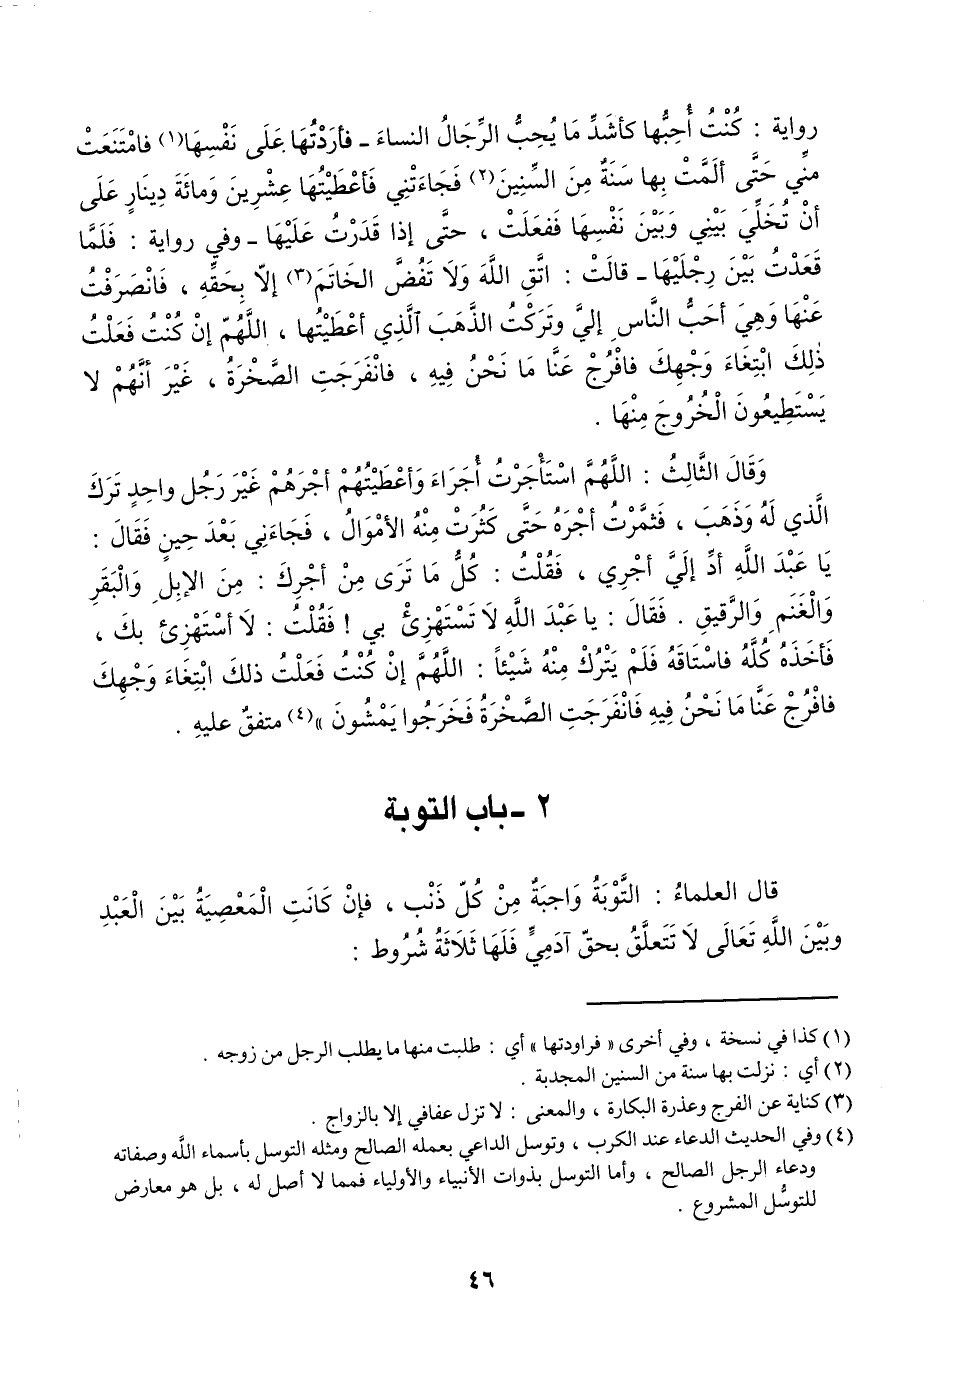 رواية : كُنْتُ أُحِبُّها كأشَدِّ مَا يُحِبُّ الرِّجَالُ النساءَ ـ فأرَدْتُهَا عَلَى نَفْسِهَا(١) فامْتَنَعَتْ
منِّي حَتَّى ألَمَّتْ بِها سَنَةٌ مِنَ السِّنِينَ(٢) فَجَاءَتْنِي فَأعْطَيْتُهَا عِشْرِينَ وَمائَةَ دِينَارٍ عَلَى
أنْ تُخَلِّيَ بَيْنِي وَبَيْنَ نَفْسِهَا فَفعَلَتْ ، حتَّى إذا قَدَرْتُ عَلَيْهَا ـ وفي رواية : فَلَمَّا
قَعَدْتُ بَيْنَ رِجْلَيْهَا ـ قالَتْ : اتَّقِ اللَّهَ وَلَا تَفُضَّ الخَاتَمَ(٣) إلاّ بِحَقِّهِ ، فَانْصَرَفْتُ
عَنْهَا وَهِيَ أحَبُّ النَّاسِ إليَّ وتَرَكْتُ الذَّهَبَ الَّذِي أعْطَيْتُها ، اللَّهُمّ إنْ كُنْتُ فَعَلْتُ
ذٰلِكَ ابْتِغَاءَ وَجْهِكَ فافْرُجْ عَنَّا مَا نَحْنُ فِيهِ ، فانْفَرَجَتِ الصَّخْرَةُ ، غَيْرَ أنَّهُمْ لا
يَسْتَطِيعُونَ الْخُرُوجَ مِنْهَا .
وَقَالَ الثَّالِثُ : اللَّهُمَّ اسْتَأْجَرْتُ أُجَرَاءَ وَأعْطَيْتُهُمْ أجْرَهُمْ غَيْرَ رَجُلٍ واحِدٍ تَرَكَ
الَّذي لَهُ وَذَهَبَ ، فَثمَّرْتُ أجْرَهُ حَتَّى كَثُرَتْ مِنْهُ الأمْوَالُ ، فَجَاءَنِي بَعْدَ حِينٍ فَقَالَ :
يَا عَبْدَ اللَّهِ أدِّ إلَيَّ أجْرِي ، فَقُلْتُ : كُلُّ مَا تَرَى مِنْ أجْرِكَ : مِنَ الإبِلِ وَالْبَقَرِ
وَالْغَنَمِ وَالرَّقيقِ . فَقَالَ : يا عَبْدَ اللَّهِ لَا تَسْتَهْزِئْ بي ! فَقُلْتُ : لَا أسْتَهْزِئ بكَ ،
فَأخَذَهُ كُلَّهُ فاسْتَاقَهُ فَلَمْ يَتْرُكْ مِنْهُ شَيْئاً : اللَّهُمَّ إنْ كُنْتُ فَعَلْتُ ذلكَ ابْتِغَاءَ وَجْهِكَ
فافْرُجْ عَنَّا مَا نَحْنُ فِيهِ فَانْفَرَجَتِ الصَّخْرَةُ فَخَرَجُوا يَمْشُونَ »(٤) متفقٌ عليهِ .
٢ ـ باب التوبة
قال العلماءُ : التَّوْبَةُ وَاجبَةٌ مِنْ كُلّ ذَنْب ، فإنْ كَانَتِ الْمَعْصِيَةُ بَيْنَ الْعَبْدِ
وبَيْنَ اللَّهِ تَعَالَى لَا تَتَعلَّقُ بحقّ آدَمِيٍّ فَلَهَا ثَلَاثَةُ شُرُوط :
(١) كذا في نسخة ، وفي أخرى « فراودتها » أي : طلبت منها ما يطلب الرجل من زوجه .
(٢) أي : نزلت بها سنة من السنين المجدبة .
(٣) كناية عن الفرج وعذرة البكارة ، والمعنى : لا تزل عفافي إلا بالزواج .
(٤) وفي الحديث الدعاء عند الكرب ، وتوسل الداعي بعمله الصالح ومثله التوسل بأسماء اللَّه وصفاته
ودعاء الرجل الصالح ، وأما التوسل بذوات الأنبياء والأولياء فمما لا أصل له ، بل هو معارض
للتوسُّل المشروع .
٤٦